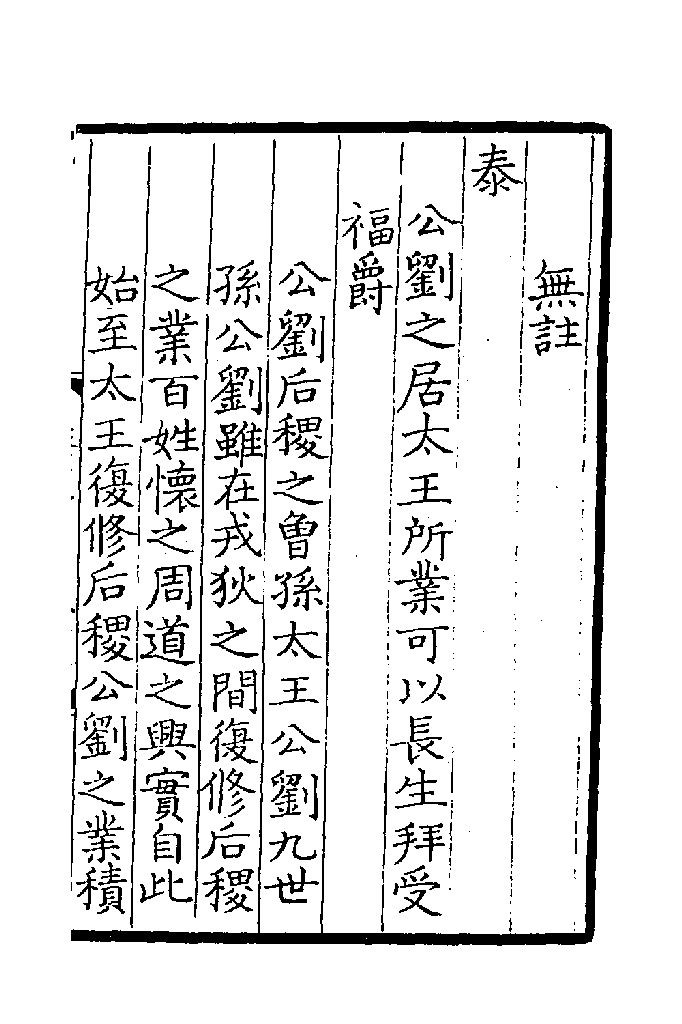 無註
泰
公劉之居太王所業可以長生拜受
福爵
公劉后稷之曾孫太王公劉九世
孫公劉雖在戎狄之間復修后稷
之業百姓懷之周道之興實自此
始至太王復修后稷公劉之業積